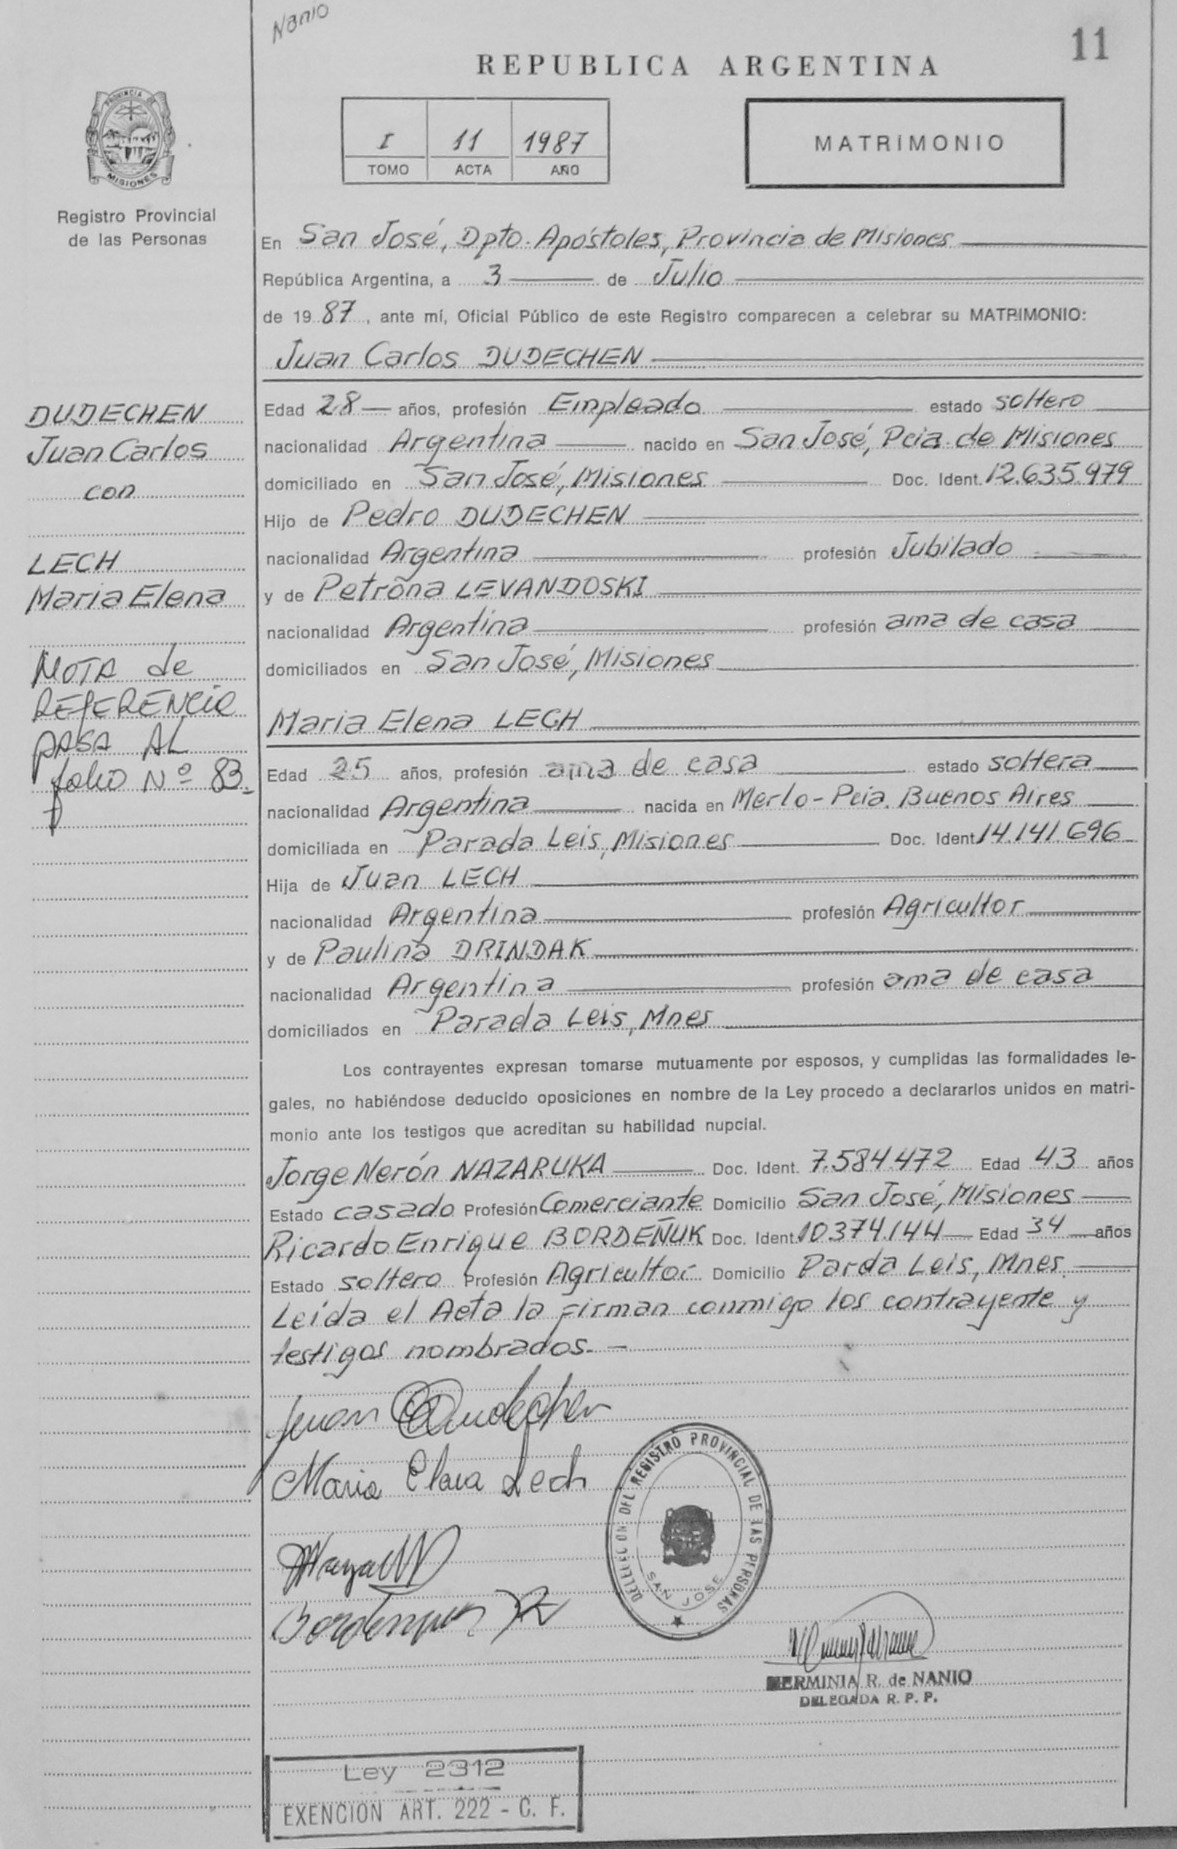 Nanio
11
REPUBLICA ARGENTINA
I 11 1987
TOMO ACTA AÑO
MATRIMONIO
PROVINCIA DE
MISIONES
Registro Provincial
de las Personas
En San José, Dpto. Apóstoles, Provincia de Misiones
República Argentina, a 3 de Julio
de 19 87, ante mí, Oficial Público de este Registro comparecen a celebrar su MATRIMONIO:
Juan Carlos DUDECHEN
Edad 28 años, profesión Empleado estado soltero
nacionalidad Argentina nacido en San José, Pcia. de Misiones
domiciliado en San José, Misiones Doc. Ident. 12.635.979
Hijo de Pedro DUDECHEN
nacionalidad Argentina profesión Jubilado
y de Petrona LEVANDOSKI
nacionalidad Argentina profesión ama de casa
domiciliados en San José, Misiones
Maria Elena LECH
Edad 25 años, profesión ama de casa estado soltera
nacionalidad Argentina nacida en Merlo - Pcia. Buenos Aires
domiciliada en Parada Leis, Misiones Doc. Ident. 14.141.696
Hija de Juan LECH
nacionalidad Argentina profesión Agricultor
y de Paulina DRINDAK
nacionalidad Argentina profesión ama de casa
domiciliados en Parada Leis, Mnes
Los contrayentes expresan tomarse mutuamente por esposos, y cumplidas las formalidades le-
gales, no habiéndose deducido oposiciones en nombre de la Ley procedo a declararlos unidos en matri-
monio ante los testigos que acreditan su habilidad nupcial.
Jorge Nerón NAZARUKA Doc. Ident. 7.584.472 Edad 43 años
Estado casado Profesión Comerciante Domicilio San José, Misiones
Ricardo Enrique BORDEÑUK Doc. Ident. 10.374.144 Edad 34 años
Estado soltero Profesión Agricultor Domicilio Parda Leis, Mnes.
Leída el Acta la firman conmigo los contrayente y
testigos nombrados. -
DUDECHEN
Juan Carlos
con
LECH
Maria Elena
NOTA de
REFERENCIA
PASA AL
folio Nº 83.
Juan C Dudechen
Maria Elena Lech
DELEGCION DEL REGISTRO PROVINCIAL DE LAS PERSONAS
SAN JOSE
HERMINIA R. de NANIO
DELEGADA R. P. P.
Ley 2312
EXENCION ART. 222 - C. F.